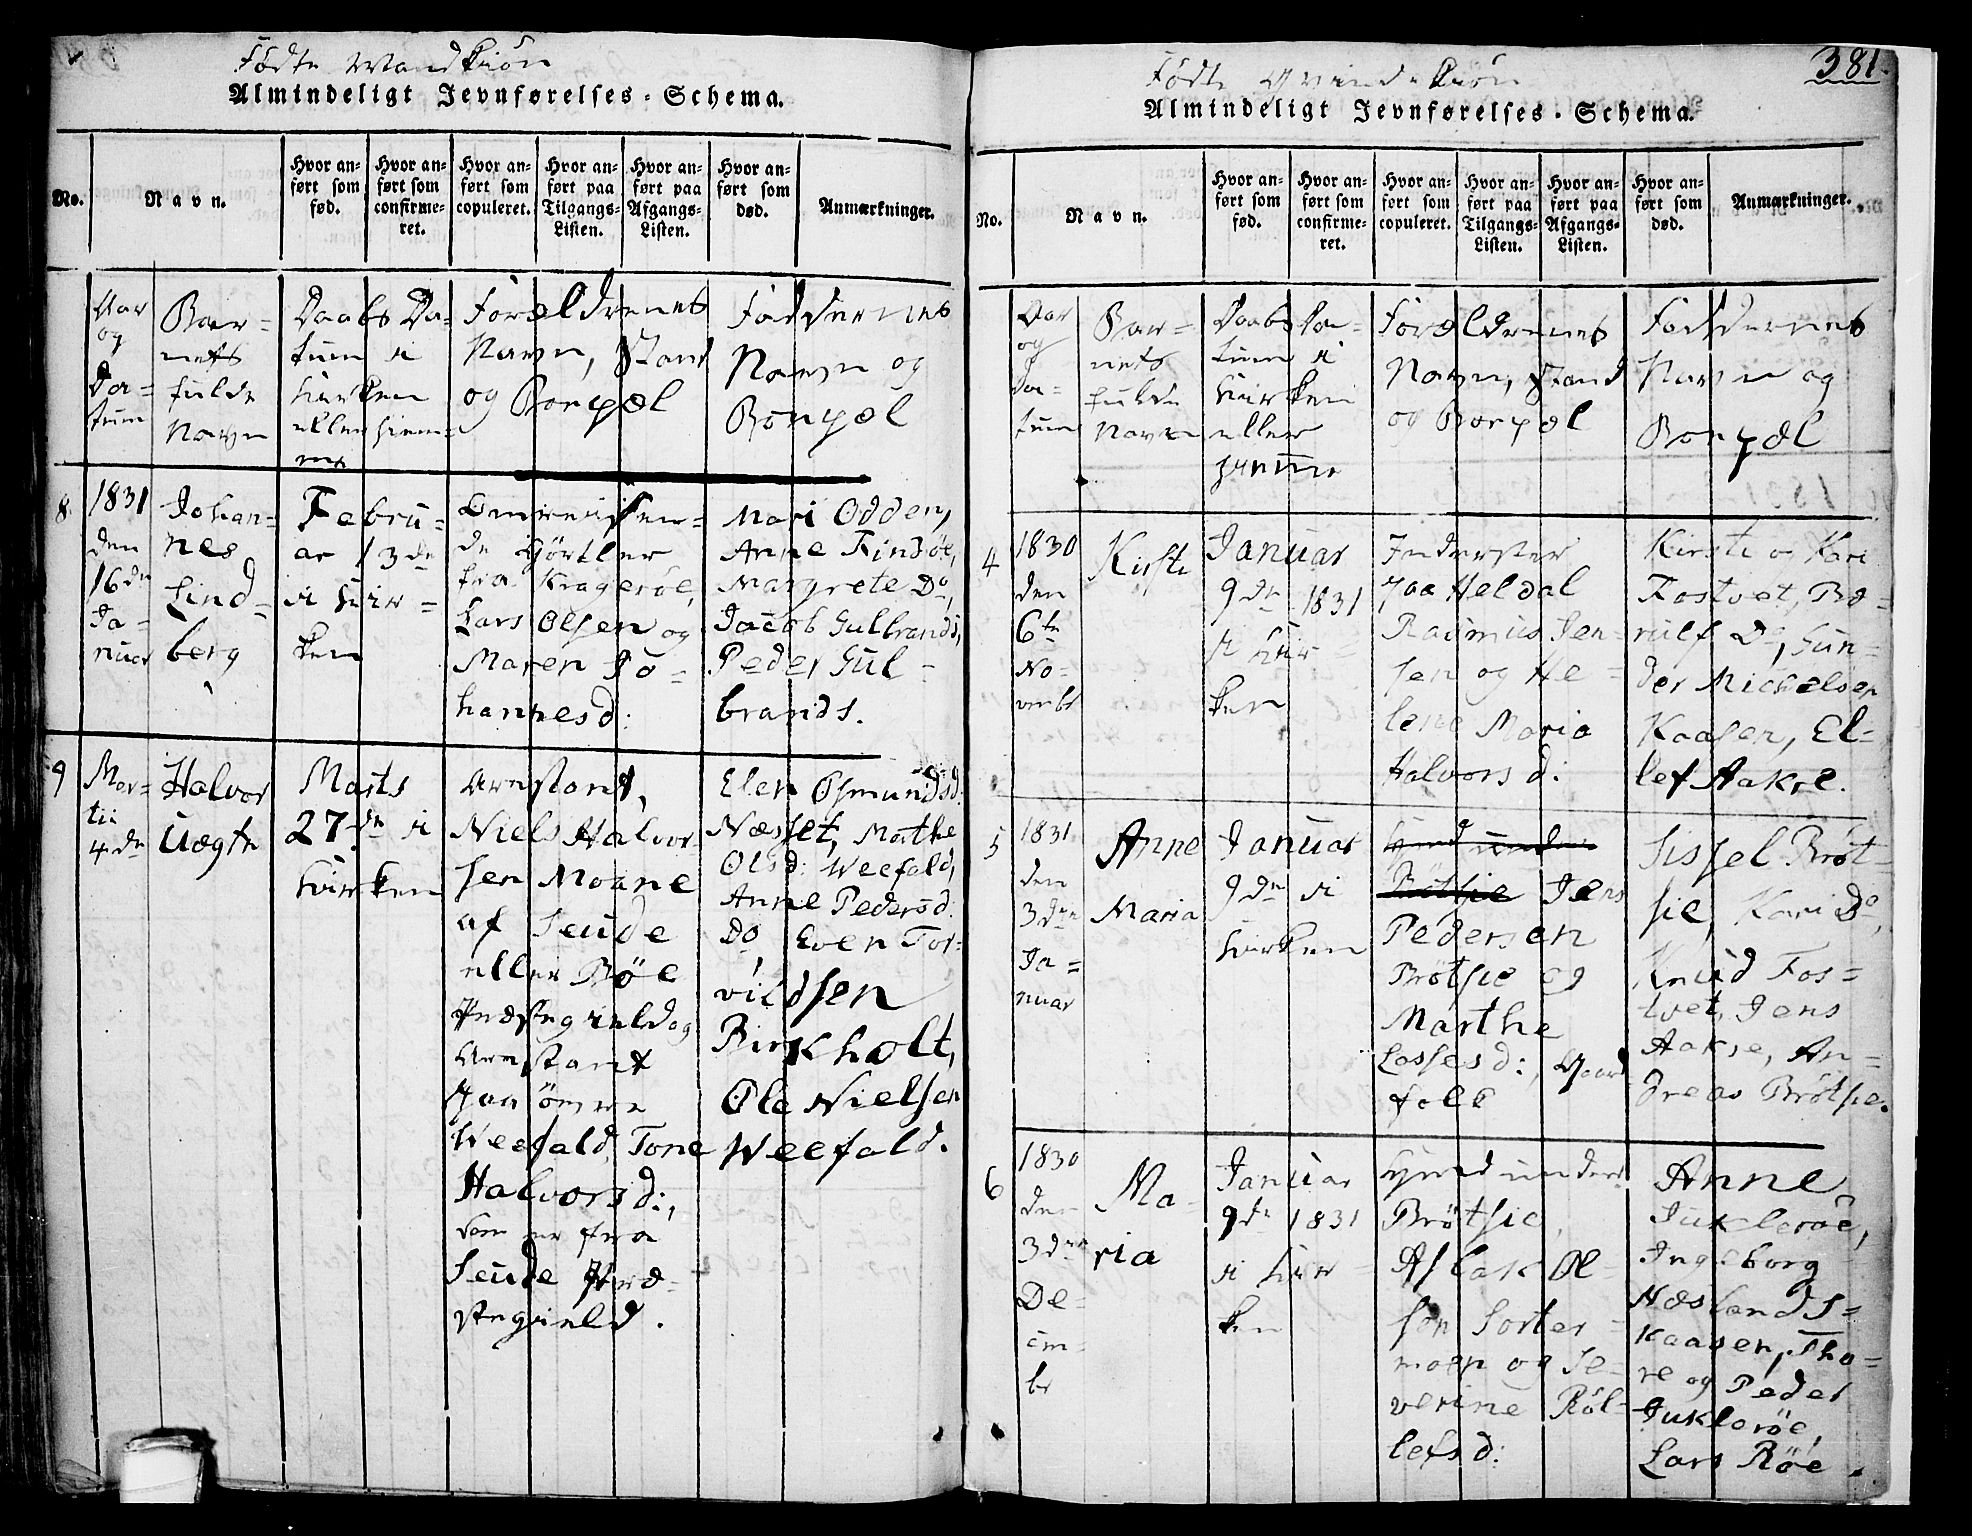 Födte Mandkiön
Almindeligt Jevnførelses-Schema.
No.
Navn.
Hvor an-
ført som
fød.
Hvor an-
ført som
confirme-
ret.
Hvor an-
ført som
copuleret.
Hvor an-
ført paa
Tilgangs-
Listen.
Hvor an-
ført paa
Afgangs-
Listen.
Hvor an-
ført som
død.
Anmærkninger.
Aar
og
Da=
tum
Bar=
nets
fulde
Navn
Daabs Da-
tum i
Kirken
eller Hiem=
me
Forældrenes
Navn, Stand
og Bopæl
Faddernes
Navn og
Bopæl
8.
1831
den
16de
Ja=
nuar
Johan=
nes
Lind=
berg
Febru=
ar 13de
i Kir=
ken
Omreisen=
de Görtler
fra Kragerøe,
Lars Olsen og
Maren Jo=
hannesd:
Mari Odden,
Anne Findsøe,
Margrete Do,
Jacob Gulbrands,
Peder Gul=
brands.
9
Mar=
tii
4de
Halvor
Uægte
Marts
27de i
Kirken
Arrestant,
Niels Halvor
sen Moane
af Seude
eller Bøe
Præstegield og
Arrestant
paa
Weefald, Tone
Halvorsd:,
som er fra
Seude Præ=
stegield.
Elen Osmundsd:
Næsset, Marthe
Olsd: Weefald,
Anne Pedersd:
Do, Even Tor=
vildsen
Birkholt,
Ole Nielsen
Weefald.
381.
Födte Qvindekiön
Almindeligt Jevnførelses-Schema.
No.
Navn.
Hvor an-
ført som
fød.
Hvor an-
ført som
confirme-
ret.
Hvor an-
ført som
copuleret.
Hvor an-
ført paa
Tilgangs-
Listen.
Hvor an-
ført paa
Afgangs-
Listen.
Hvor an-
ført som
død.
Anmærkninger.
Aar
og
Da=
tum
Bar=
nets
fulde
Navn
Daabs Da=
tum i
Kirken
eller
Hiemme
Forældrenes
Navn, Stand
og Bopæl
Faddernes
Navn og
Bopæl
4
1830
den
6te
No=
vembr
Kirsti
Januar
9de 1831
i Kir=
ken
Inderster
paa Heldal
Rasmus Jen=
sen og He=
lene Maria
Halvorsd:
Kirsti og Kari
Fostvet, Bo=
rulf Do, Gun=
der Michelsen
Kaasen, El=
lef Aakre.
5
1831
den
3die
Ja=
nuar
Anne
Maria
Januar
9de i
Kirken
Jens
Pedersen
Brötsie og
Marthe
Lassesd:, Gaard
folk
Sissel Bröt=
sie, Kari Do,
Knud Fos=
tvet, Jens
Aakre, An=
dreas Brötsie.
6
1830
den
3die
De=
cem=
br
Ma=
ria
Januar
9de 1831
i Kir=
ken
Hynd under
Brötsie,
Aslak Ol=
sen Sorter=
moen og Se=
verine Röl=
lefsd:
Anne
Juklerøe,
Ingeborg
Næslands=
Kaasen, Tho=
re og Peder
Juklerøe,
Lars Røe.